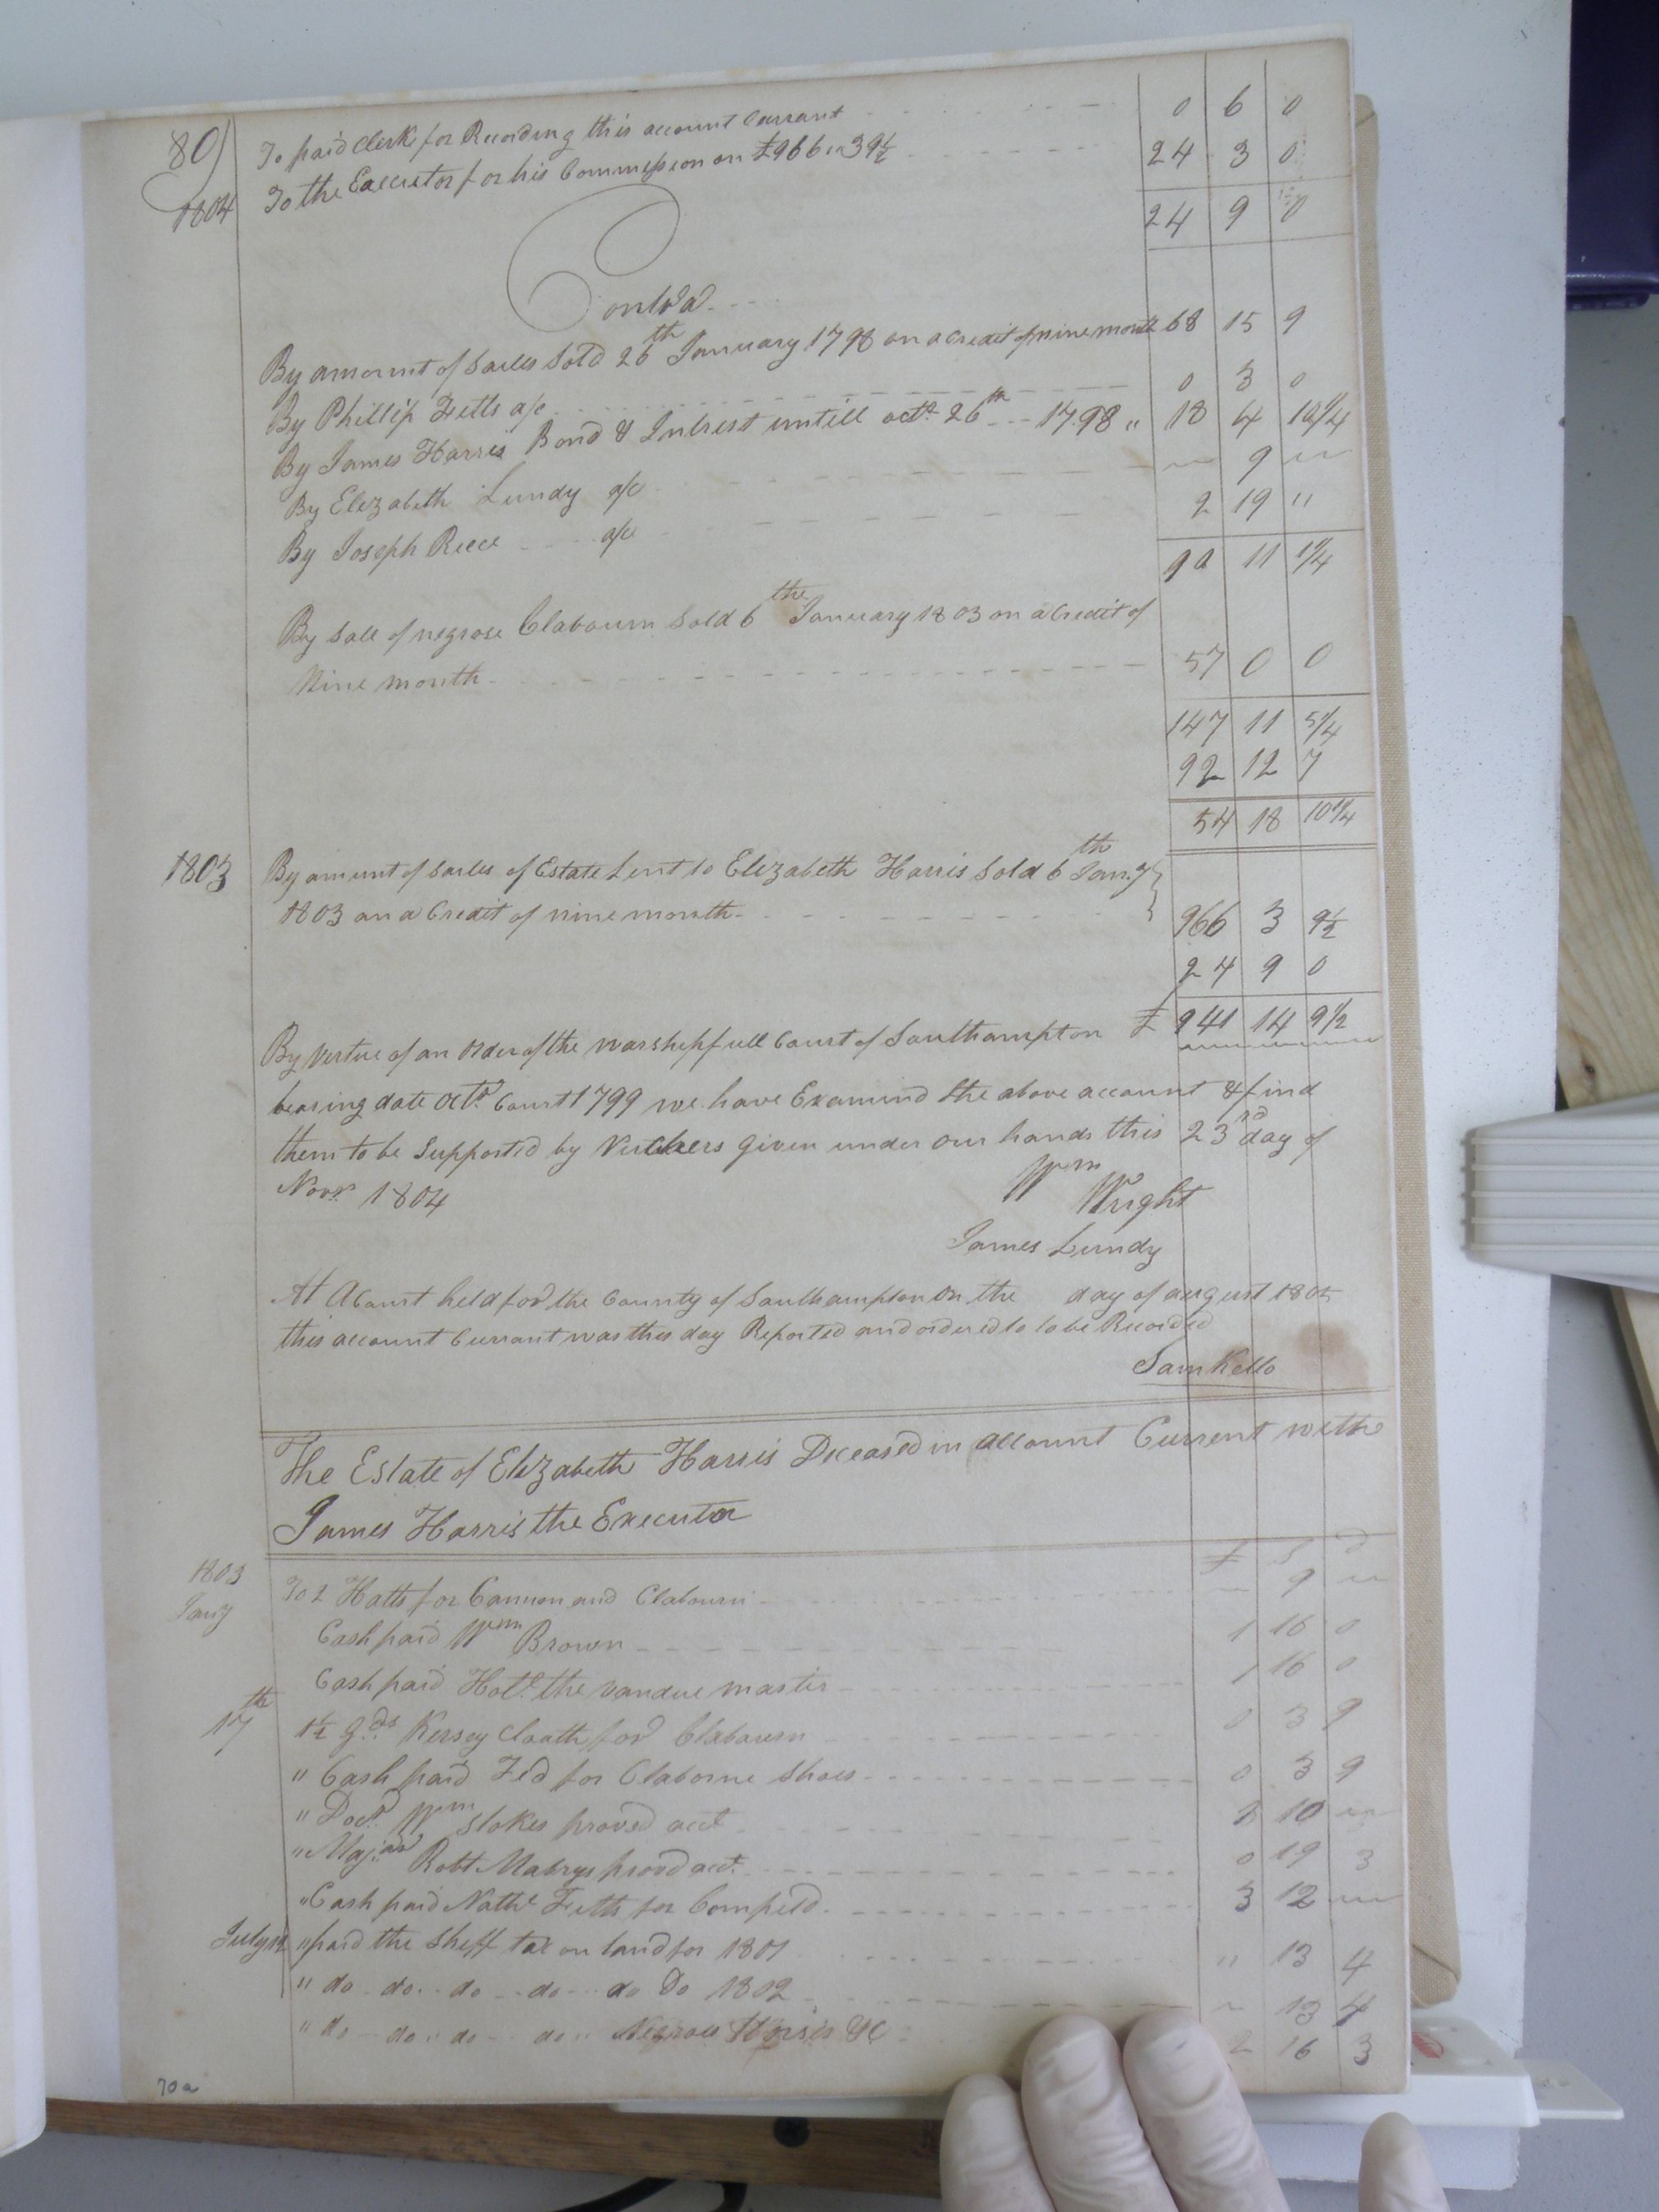 80) To paid Clerk for Recording this account Currant 0 6 0
1804 To the Executor for his Commission on £966..3 9½ 24 3 0
24 9 0
Contra
By amount of Sailes Sold 26th January 1798 on a Credit of nine month 68 15 9
By Phillip Fetts a/c 0 3 0
By James Harris Bond & Intrest untill octr 26th 1798 " 18 4 10¼
By Elizabeth Lundy a/c 9
By Joseph Reece a/c 2 19 "
90 11 1¼
By Sale of negrose Clabourn Sold 6the January 1803 on a Credit of
Nine month 57 0 0
147 11 5¼
92 12 7
54 18 10¼
1803 By amount of Sailes of Estate Lent to Elizabeth Harris Sold 6th Jany
1803 on a Credit of nine month 966 3 9½
24 9 0
£ 941 14 9½
By Vertue of an order of the worshipfull Court of Southampton
bearing date octr Court 1799 we have Examind the above account & find
them to be Supported by Vutchers given under our hands this 23rd day of
Novr 1804 Wm Wright
James Lundy
At A Court held for the County of Southampton on the day of august 1805
this account Currant was this day Reported and ordered to be Recorded
Sam Kello
The Estate of Elizabeth Harris Deceased in account Current with
James Harris the Executor
£ S D
1803 Jany To 2 Hatts for Cannon and Clabourn 9
Cash paid Wm Brown 1 16 0
Cash paid Holt the vandue master 1 16 0
17th 1½ yds Kersey Cloath for Clabourn 0 3 9
" Cash paid Fed for Claborne Shoes 0 3 9
" Doctr Wm Stokes proved acct 2 10
" Major Robt Mabrys proved acct 0 19 3
" Cash paid Nathl Fetts for Compeld 3 12
July " paid the Sheff tax on land for 1801 " 13 4
" do do do do do Do 1802 13 4
" do do " do do " Negroes Horses &C 2 16 3
70a